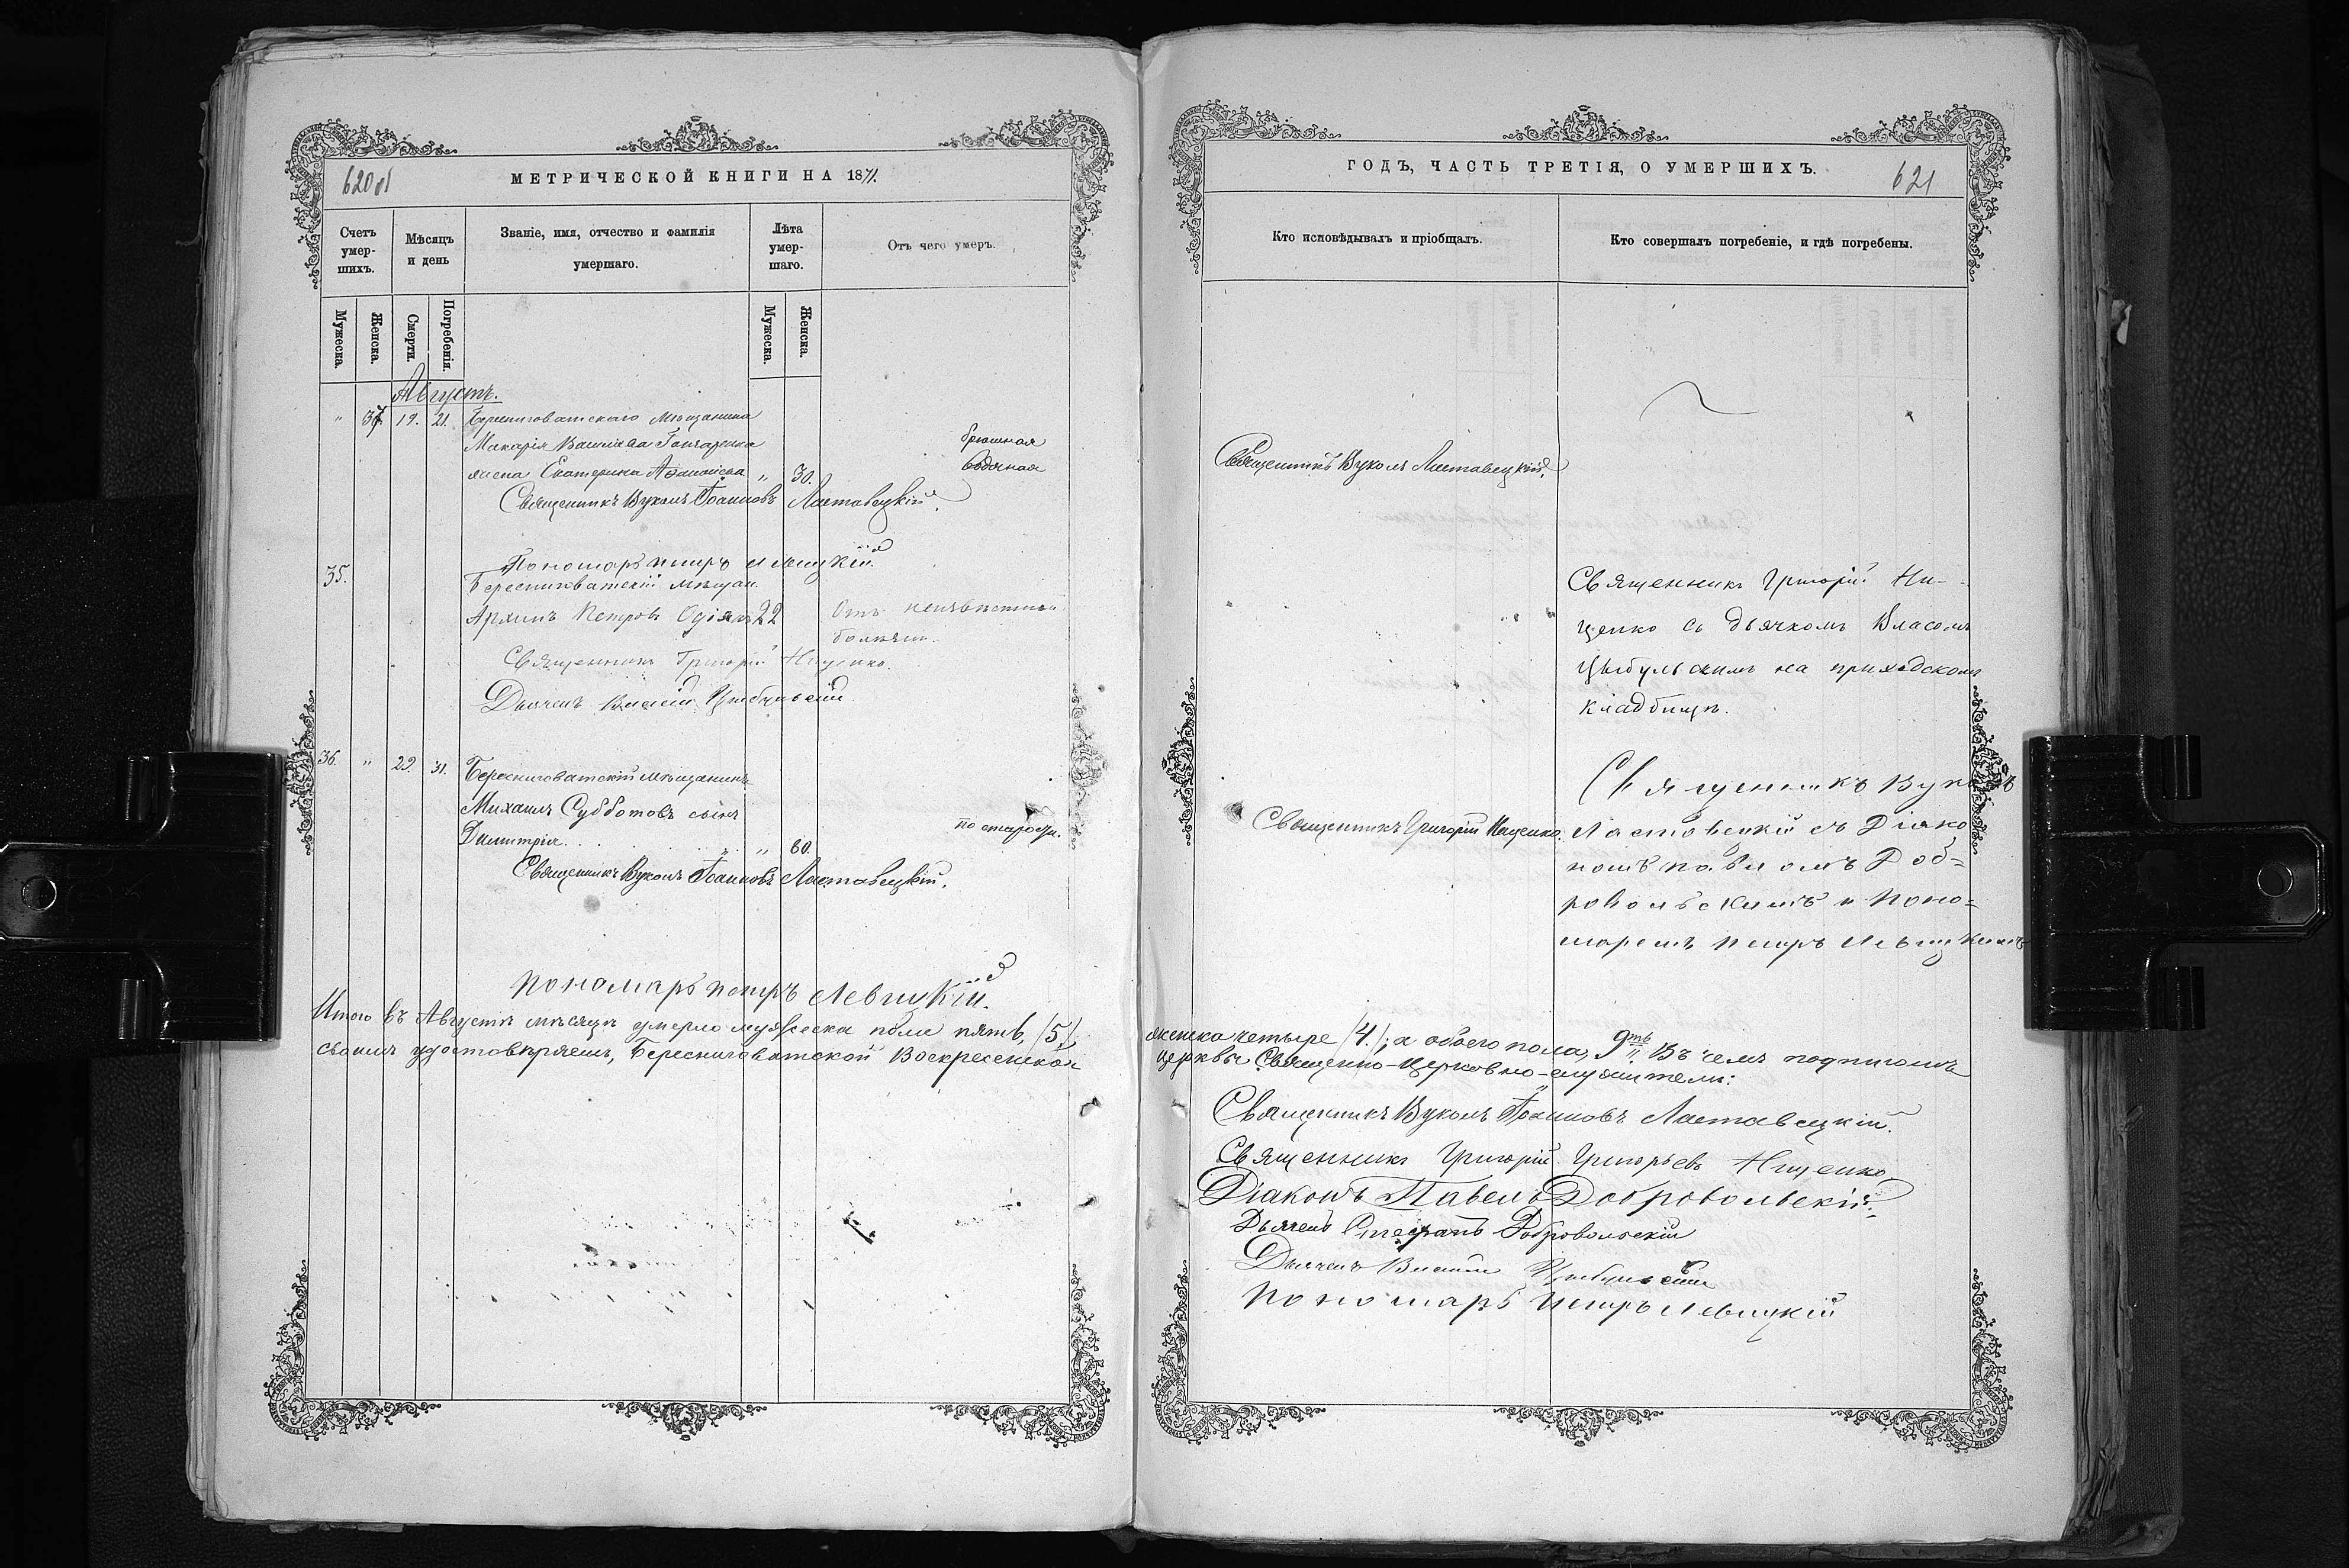 620 об
МЕТРИЧЕСКОЙ КНИГИ НА 1871.
Счетъ умер-шихъ.
Мѣсяцъ и день
Званіе, имя, отчество и фамилія умершаго.
Лѣта умер-шаго.
Отъ чего умеръ.
Мужеска.
Женска.
Смерти.
Погребенія.
Мужеска.
Женска.
Августъ.
" 37 19. 21. Береснеговатскаго Мѣщанина
Макарія Васильева Гончаренка
жена Екатерина " 30.
брюшная
водяная
Священникъ Вуколъ Іоанновъ Ластавецкій.
Пономарь петръ Левицкій
35.
Бересниватскій мѣщан.
Петровъ 22
Отъ неизвѣстной
болѣзни.
Священникъ Григорій Нищенко.
Дьячекъ Власій Цыбульскій
36. " 29. 31. Береснеговатскій мѣщанинъ
Михаилъ Субботовъ сынъ
Димитрія " 80.
по старости.
Священникъ Вуколъ Іоанновъ Ластавецкій.
пономарь петръ Левицкій.
Итого въ Августѣ мѣсяцѣ умерло мужеска пола пять, /5/,
своимъ удостовѣряемъ, Береснеговатской Воскресенской
ГОДЪ, ЧАСТЬ ТРЕТІЯ, О УМЕРШИХЪ.
621
Кто исповѣдывалъ и пріобщалъ.
Кто совершалъ погребеніе, и гдѣ погребены.
Священникъ Вуколъ Ластавецкій.
Священникъ Григорій Ни-
щенко съ дьячкомъ Власомъ
Цыбульскимъ на приходскомъ
кладбищѣ.
Священникъ Григорій Нищенко.
Священникъ Вуколъ
Ластовецкій съ Діако
номъ павломъ Доб=
ровольскимъ и Поно=
маремъ петръ Левицкимъ
женска четыре /4./; а обоего пола, 9ть. Въ чемъ подписомъ
церкви Священно-Церковно-служители:
Священникъ Вуколъ Іоанновъ Ластавецкій.
Священникъ Григорій Григорьевъ Нищенко
Діаконъ Павелъ Добровольскій.
Дьячекъ Стефанъ Добровольскій
Дьячекъ Власій Цыбульскій
Пономарь петръ Левицкій